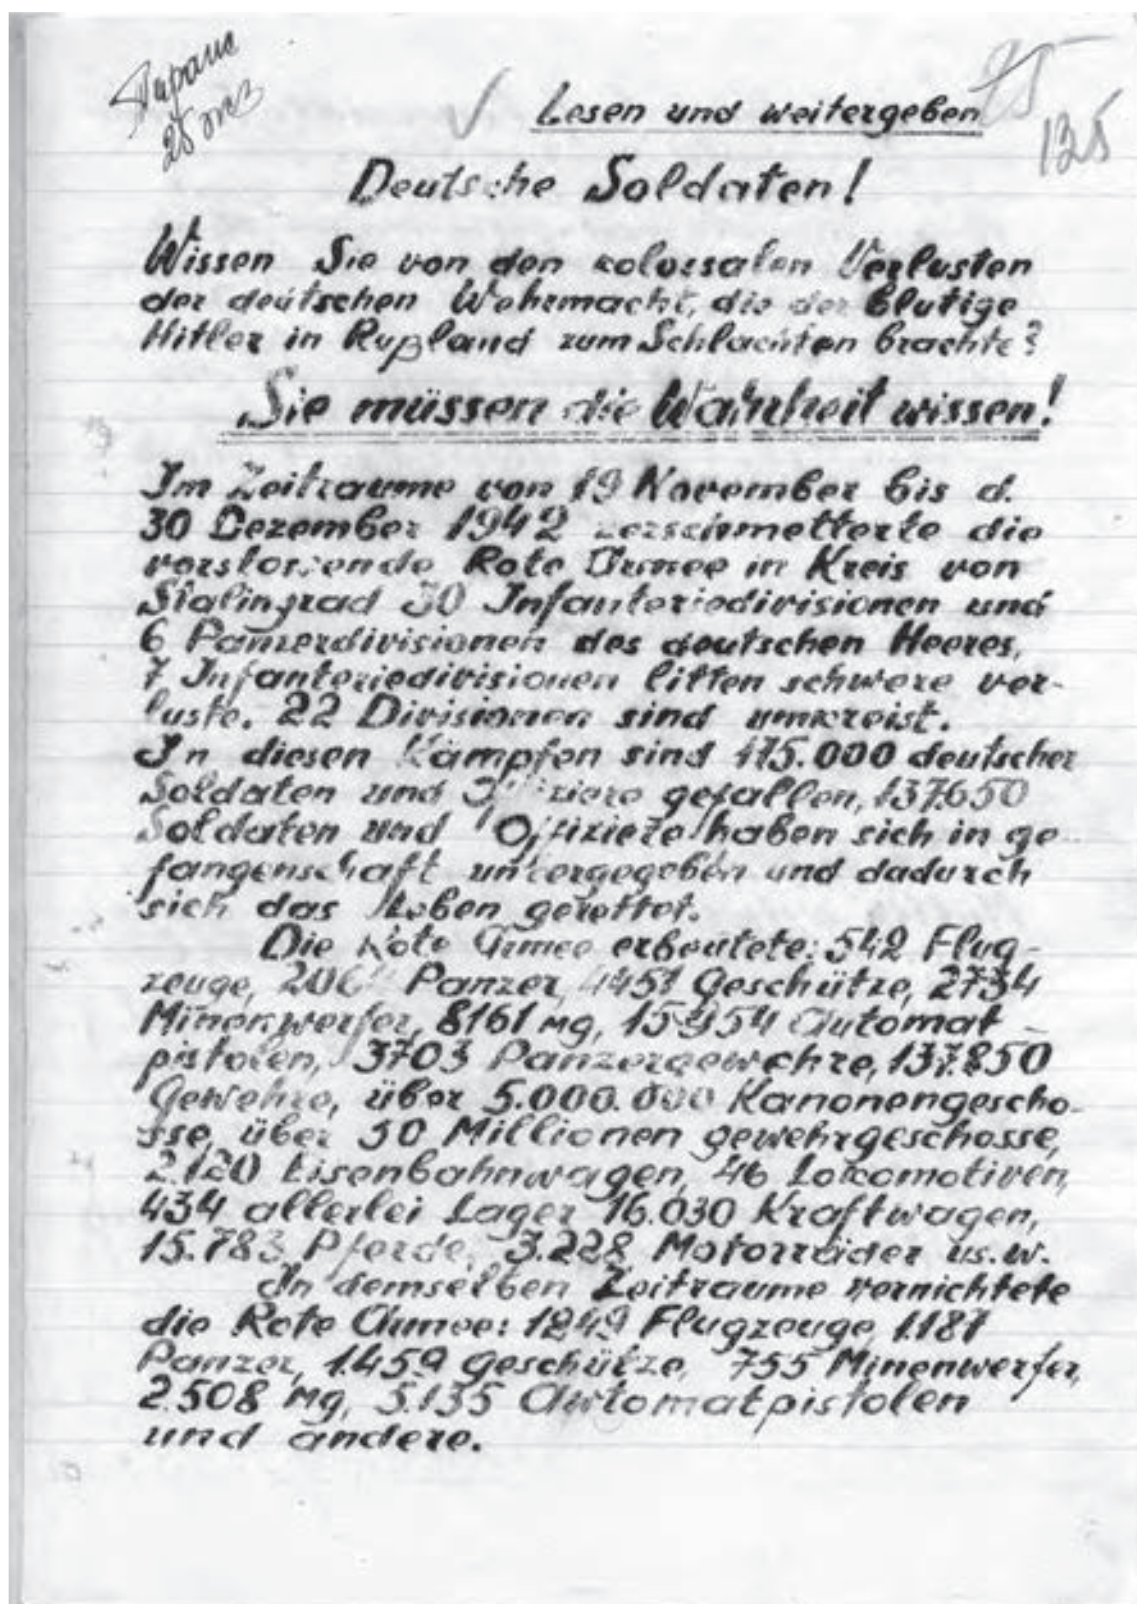 Тираж
25 экз
25
135
Lesen und weitergeben
Deutsche Soldaten!
Wissen Sie von den kolossalen Verlusten
der deutschen Wehrmacht, die der blutige
Hitler in Rußland zum Schlachten brachte?
Sie müssen die Wahrheit wissen!
Im Zeitraume von 19 November bis d.
30 Dezember 1942 zerschmetterte die
vorstossende Rote Armee in Kreis von
Stalingrad 30 Infanteriedivisionen und
6 Panzerdivisionen des deutschen Heeres,
7 Infanteriedivisionen litten schwere ver-
luste. 22 Divisionen sind umkreist.
In diesen Kämpfen sind 175.000 deutscher
Soldaten und Offiziere gefallen, 137.650
Soldaten und Offiziere haben sich in ge-
fangenschaft untergegeben und dadurch
sich das Leben gerettet.
Die Rote Armee erbeutete: 542 Flug-
zeuge, Panzer, 4451 Geschütze, 2734
Minenwerfer, 8161 Mg, 15.954 Automat-
pistolen, 3703 Panzergewehre, 137.850
Gewehre, über 5.000.000 Kanonengescho-
sse, über 50 Millionen gewehrgeschosse,
2.120 Eisenbahnwagen, 46 Lokomotiven,
434 allerlei Lager 16.030 Kraftwagen,
15.783 Pferde, 3.228 Motorräder us.w.
In demselben Zeitraume vernichtete
die Rote Armee: 1249 Flugzeuge, 1.187
Panzer, 1.459 Geschütze, 755 Minenwerfer,
2.508 Mg, 5.135 Automatpistolen
und andere.